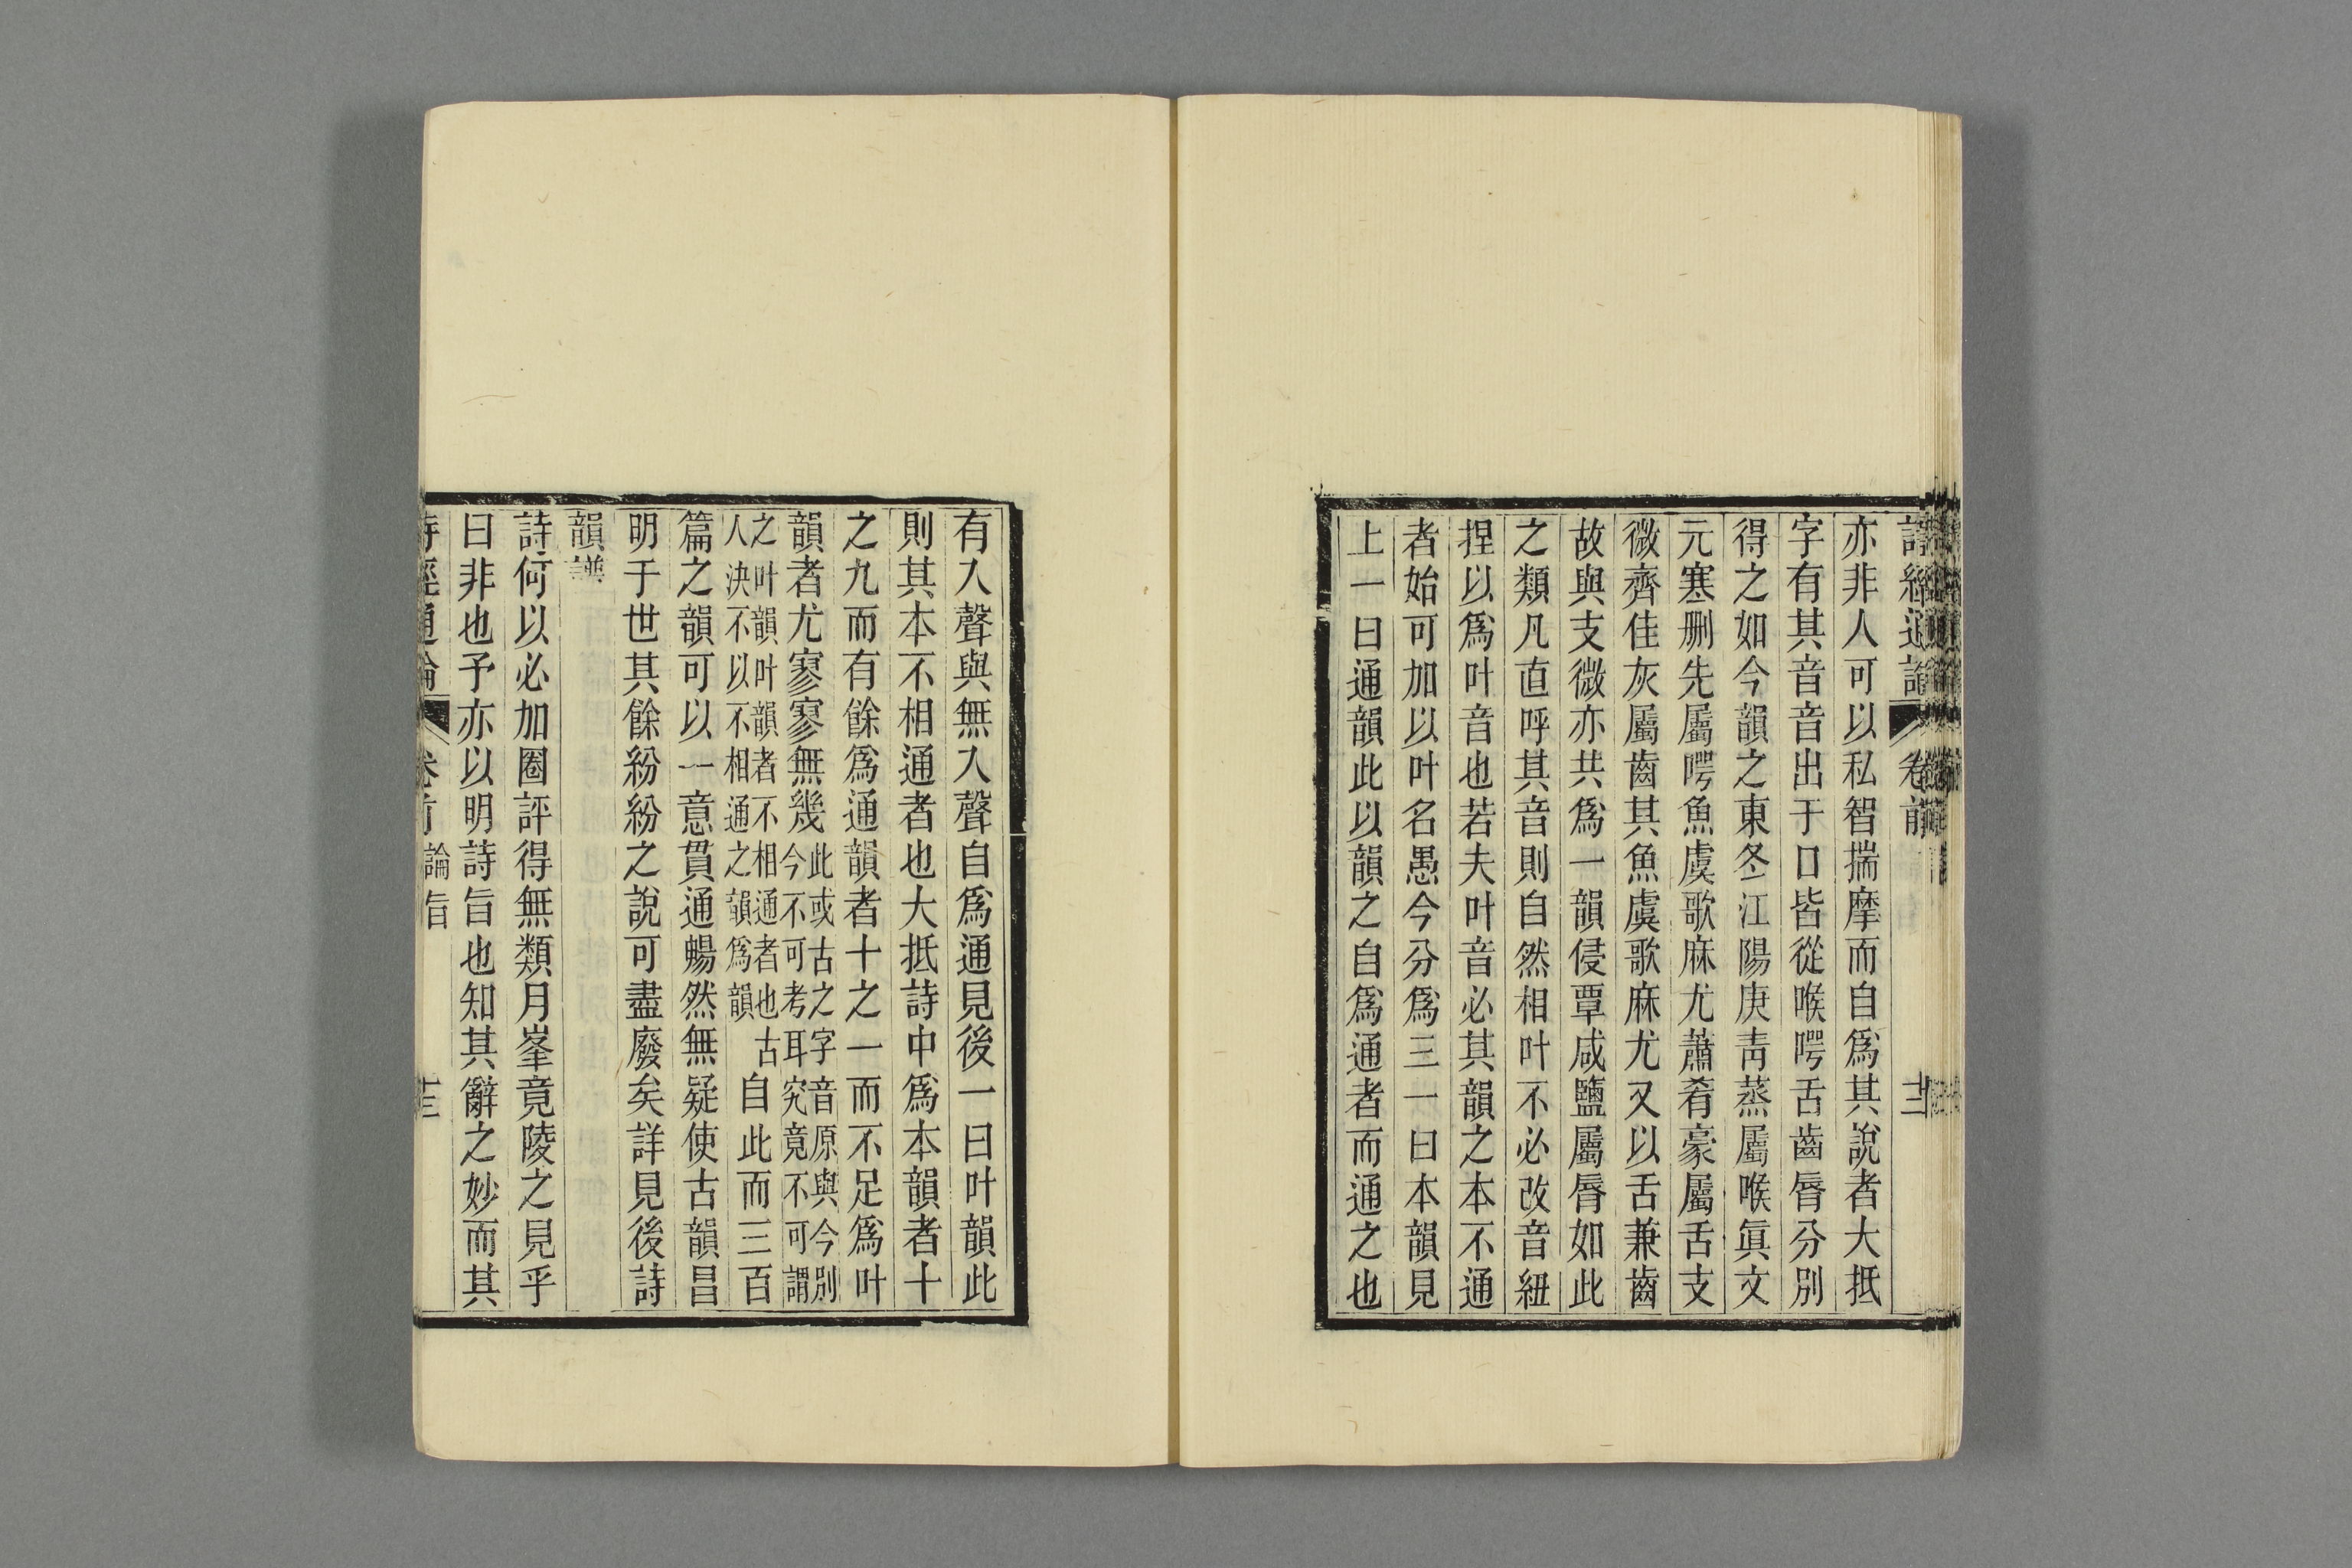 詩經通論 卷前 十二
亦非人可以私智揣摩而自爲其說者大抵
字有其音音出于口皆從喉㗁舌齒脣分別
得之如今韻之東冬江陽庚靑蒸屬喉眞文
元寒刪先屬㗁魚虞歌麻尤蕭肴豪屬舌支
微齊佳灰屬齒其魚虞歌麻尤又以舌兼齒
故與支微亦共爲一韻侵覃咸鹽屬脣如此
之類凡直呼其音則自然相叶不必改音紐
捏以爲叶音也若夫叶音必其韻之本不通
者始可加以叶名愚今分爲三一曰本韻見
上一曰通韻此以韻之自爲通者而通之也
有入聲與無入聲自爲通見後一曰叶韻此
則其本不相通者也大抵詩中爲本韻者十
之九而有餘爲通韻者十之一而不足爲叶
韻者尤寥寥無幾此或古之字音原與今別
今不可考耳究竟不可謂
之叶韻叶韻者不相通者也古
人決不以不相通之韻爲韻
自此而三百
篇之韻可以一意貫通暢然無疑使古韻昌
明于世其餘紛紛之說可盡廢矣詳見後詩
韻譜
詩何以必加圈評得無類月峯竟陵之見乎
曰非也予亦以明詩旨也知其辭之妙而其
詩經通論 卷前 論旨 十三